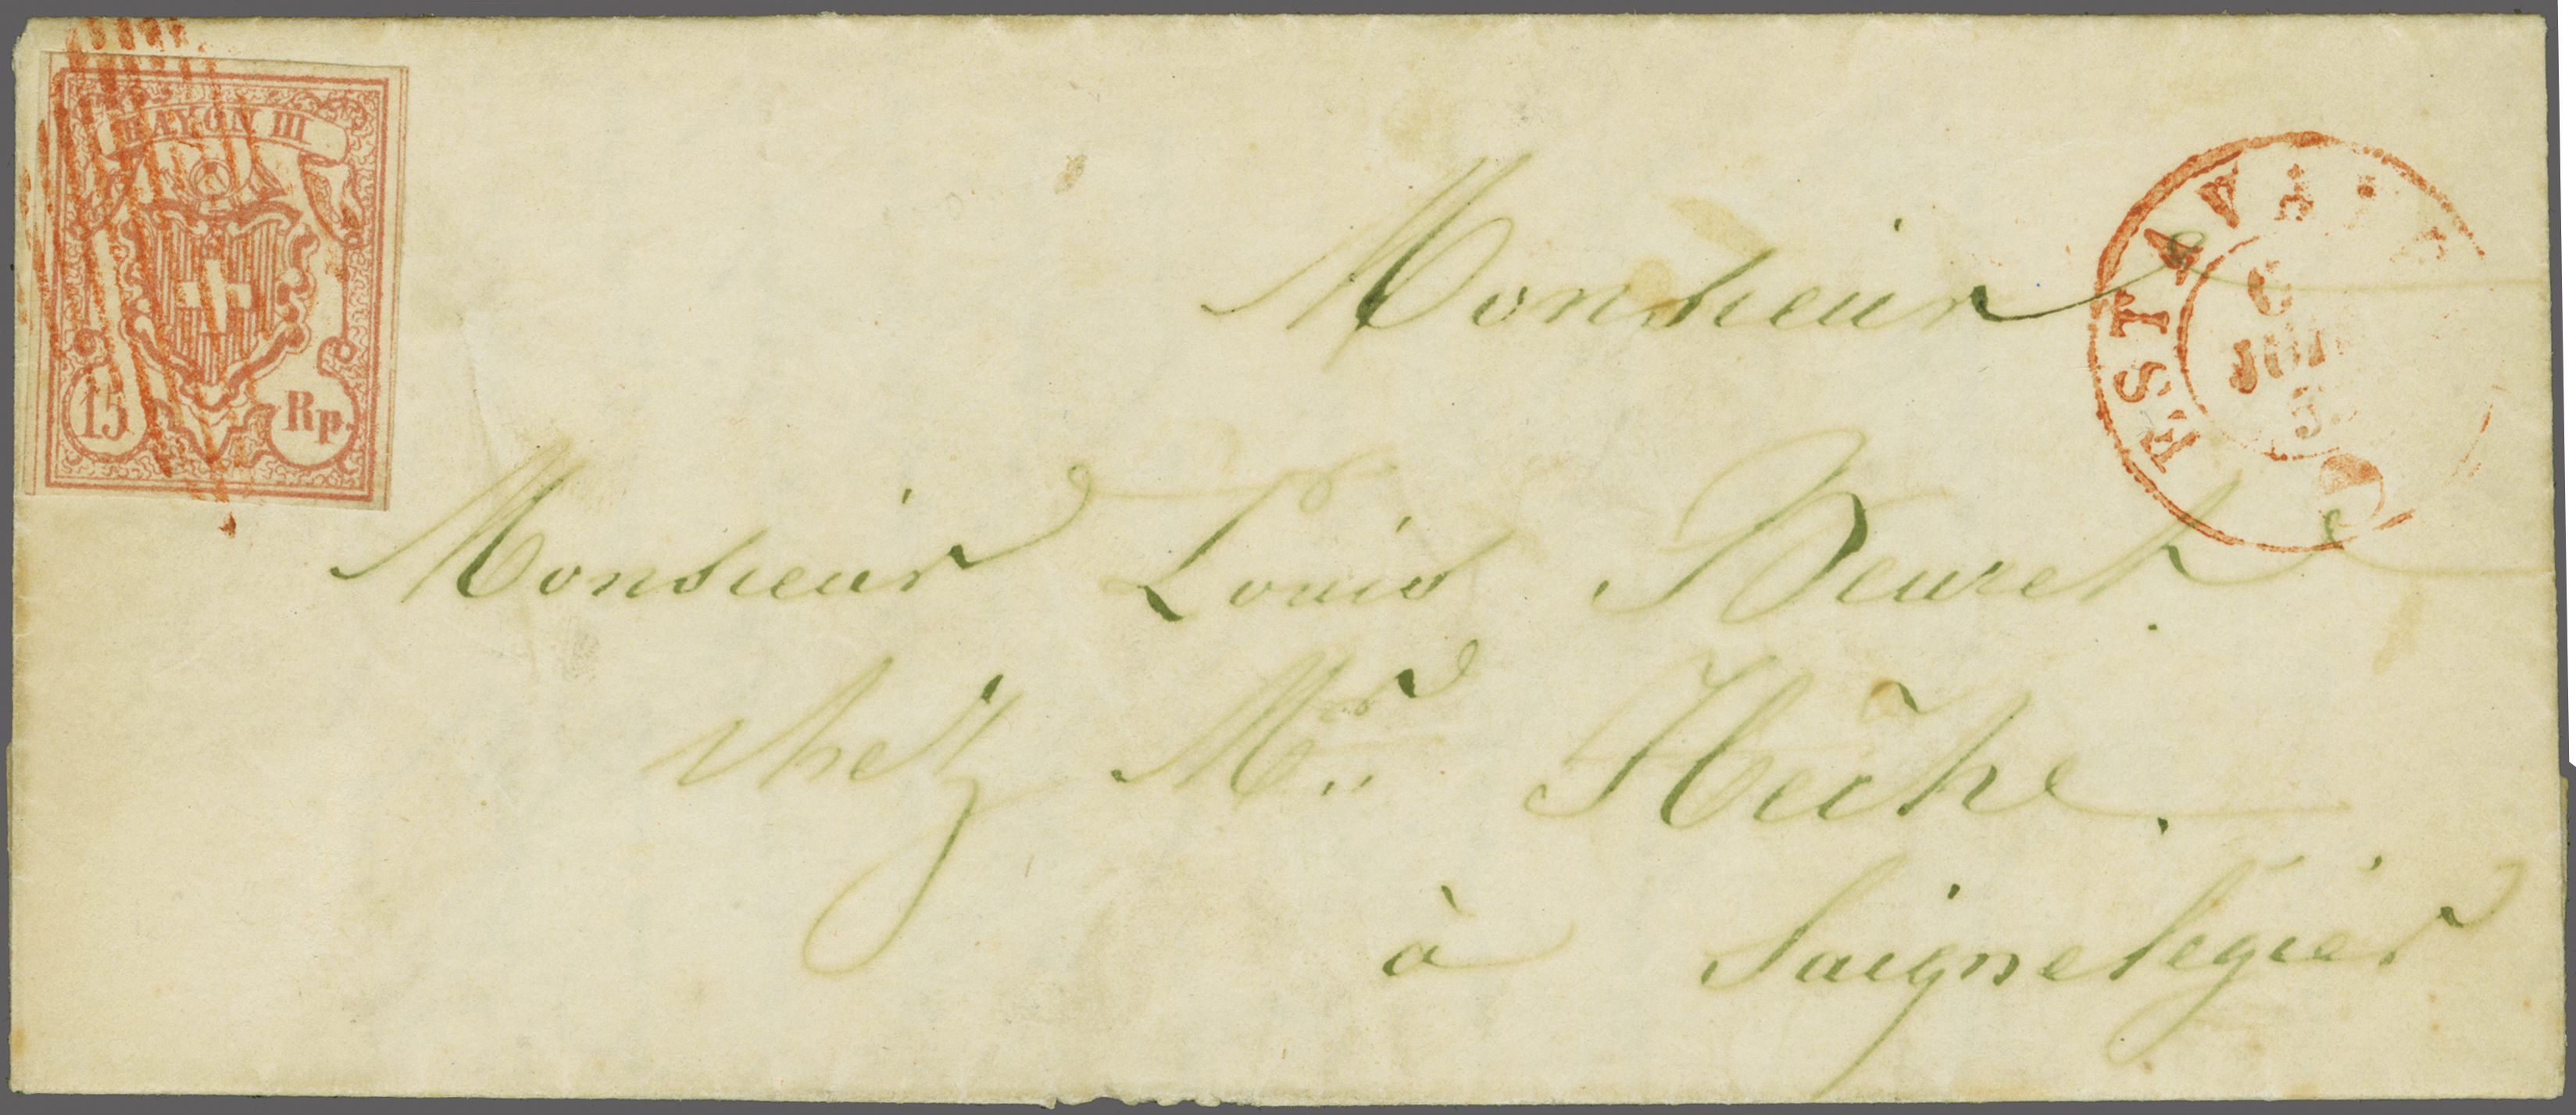 RAYON III
15 Rp.
ESTAVA
Monsieur
Monsieur Louis Beuret.
chez Mr
à Saignelegier